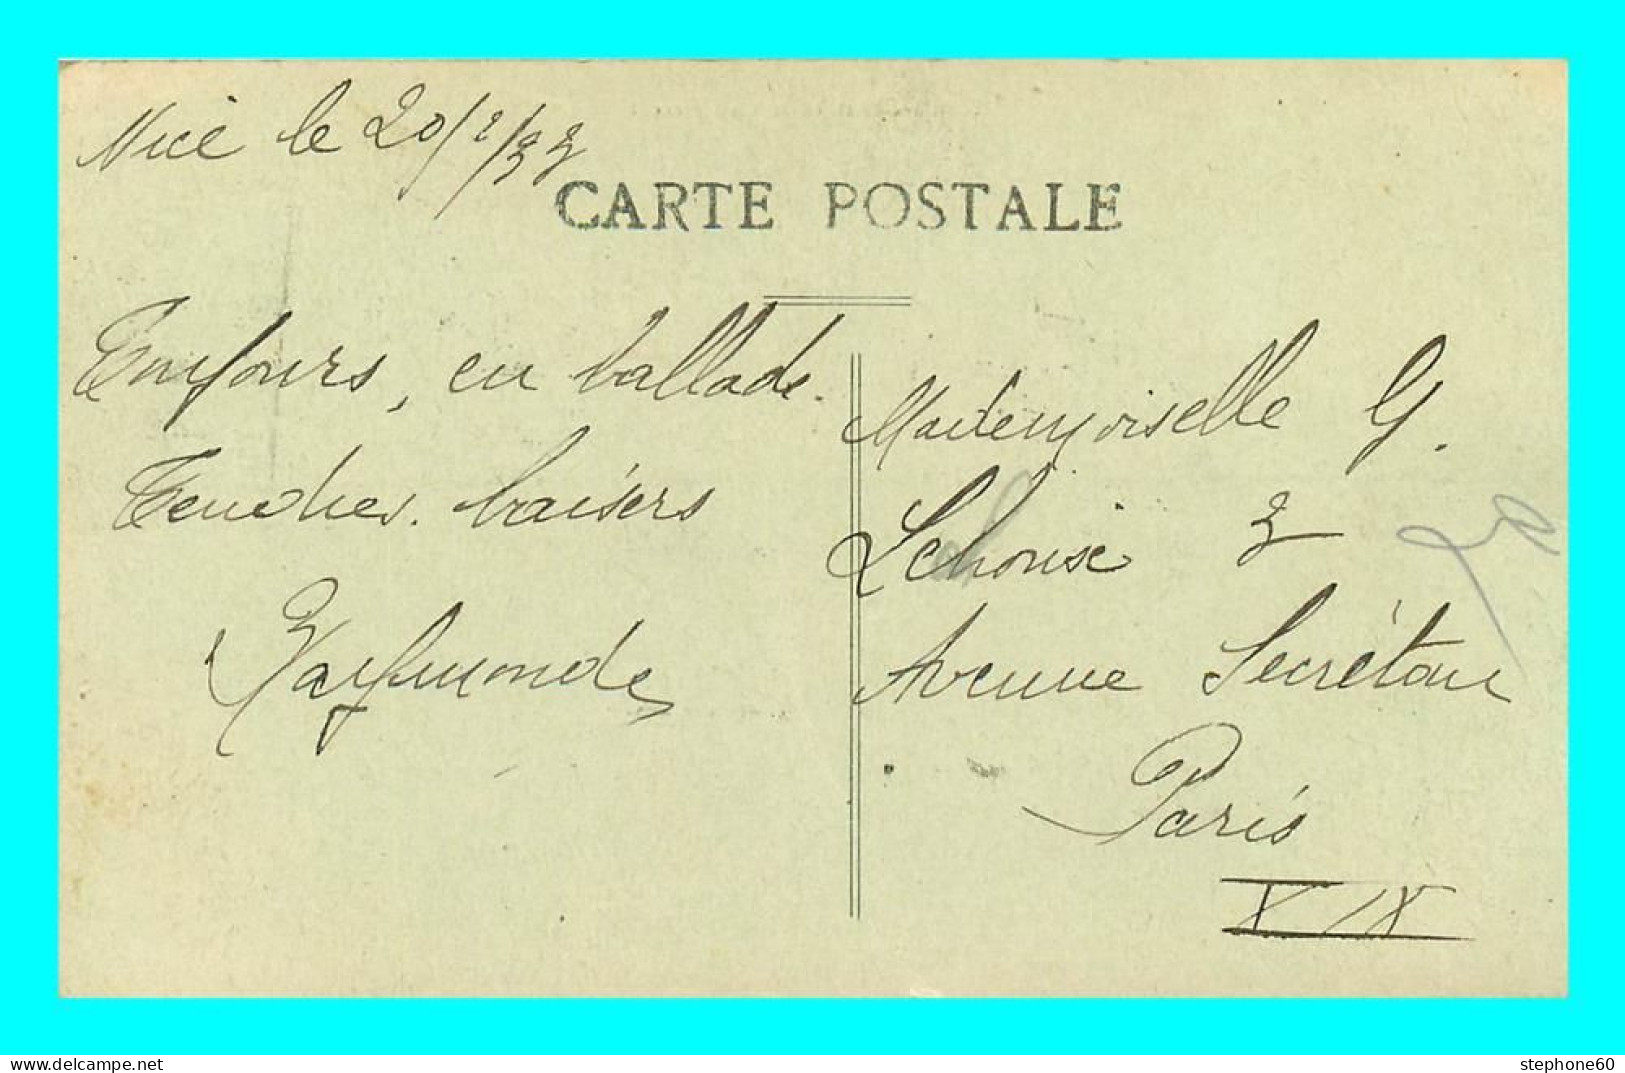 Nice le 20/2/33
CARTE POSTALE
Toujours, en ballade.
Tendres baisers
Raymonde
Mademoiselle G.
Lehouse 3
Avenue Secrétan
Paris
XIX
stephone60